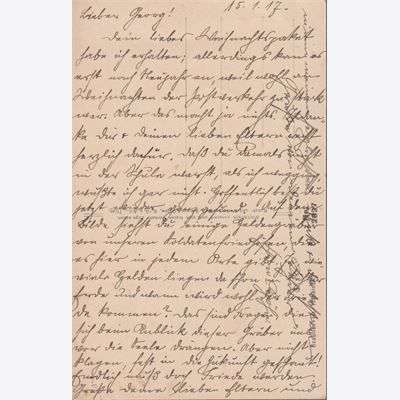 15.1.17.
Lieber Georg!
Dein liebes Weihnachtspaket
habe ich erhalten; allerdings kam es
erst nach Neujahr an, weil wohl um
Weihnachten der Postverkehr zu stark
war. Aber das macht ja nichts. Ich dan-
ke dir & deinen lieben Eltern
herzlich dafür. Daß du damals nicht
in der Schule warst, als ich wegging,
wußte ich gar nicht. Hoffentlich bist du
jetzt wieder ganz gesund. Auf dem
Bilde siehst du einige Heldengräber
von unseren Soldatenfriedhöfen, die
es hier in jedem Orte gibt. Wie
viele Helden liegen da schon
Erde und wann wird wohl
de kommen? Das sind Fragen, die
sich beim Anblick dieser Gräber uns
vor die Seele drängen. Aber nicht
klagen, fest in die Zukunft geschaut!
Endlich muß doch Friede werden.
Grüße deine lieben Eltern und